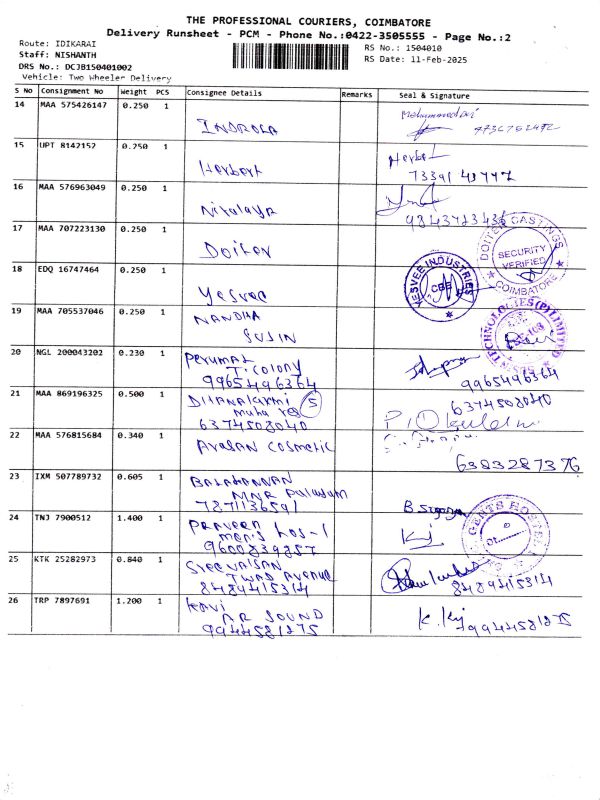 THE PROFESSIONAL COURIERS, COIMBATORE
Delivery Runsheet - PCM - Phone No.:0422-3505555 - Page No.:2
Route: IDIKARAI
RS No.: 1504010
Staff: NISHANTH
RS Date: 11-Feb-2025
DRS No.: DCJB150401002
Vehicle: Two Wheeler Delivery
S No Consignment No Weight PCS Consignee Details Remarks Seal & Signature
14 MAA 575426147 0.250 1
INDROLA
15 UPT 8142152 0.250 1 Herbal
Herbert
16 MAA 576963049 0.250 1
Nivalaya
9843723436
17 MAA 707223130 0.250 1
Doiter
DOITER CASTINGS
SECURITY
VERIFIED
COIMBATORE
18 EDQ 16747464 0.250 1
Yesvee
YESVEE INDUSTRIES
CBE
19 MAA 705537046 0.250 1
NANDHA
SUSIN
TECHNOLOGIES (P) LIMITED
20 NGL 200043202 0.230 1 Perumal
T. Colony
9965496364 9965496364
21 MAA 869196325 0.500 1 Dhanalaxmi
5
6374508040 6374508040
22 MAA 576815684 0.340 1 Avasan Cosmetic
6383287376
23 IXM 507789732 0.605 1 BALAKANNAN
MNR Paludam
7871136591 B
24 TNJ 7900512 1.400 1 PRAVEEN
men's hos-1
9600839857
GENTS HOSTEL
25 KTK 25282973 0.840 1 Sreevatsan
TWAD Avenue
8489415314 8489415314
26 TRP 7897691 1.200 1 Kavi
AR SOUND K.
9944581275 9944581275